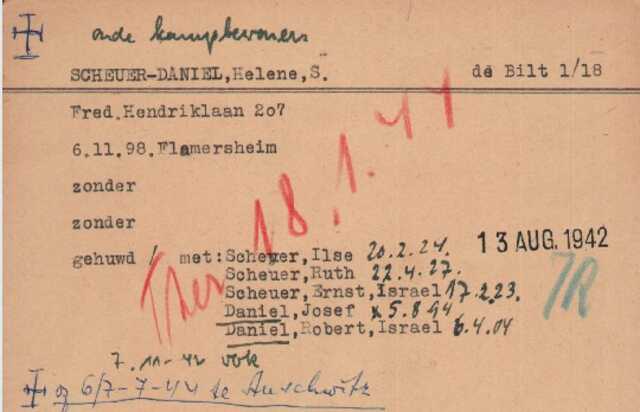 oude kampbewoners
SCHEUER-DANIEL,Helene,S. de Bilt 1/18
Fred.Hendriklaan 207
6.11.98.Flamersheim
zonder
zonder
gehuwd / met:Scheuer,Ilse 20.2.24. 13 AUG. 1942
Scheuer,Ruth 22.4.27.
Scheuer,Ernst,Israel 17.2.23.
Daniel,Josef x 5.8.94
Daniel,Robert,Israel 6.4.04
Ther 18.1.44
7R
7.11-42 VbK
op 6/7-7-44 te Auschwitz